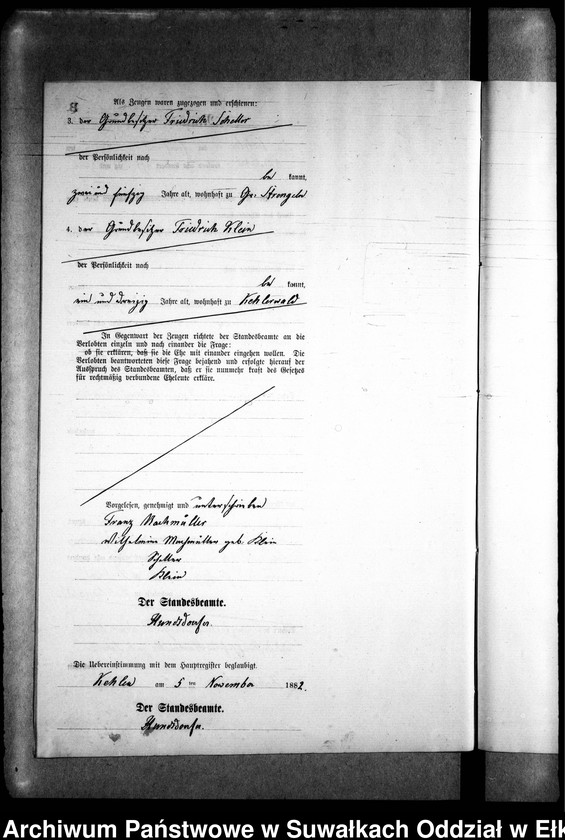 Als Zeugen waren zugezogen und erschienen:
3. der Grundbesitzer Friedrich Scheller
der Persönlichkeit nach
be kannt,
zwei und fünfzig Jahre alt, wohnhaft zu Gr. Strengeln
4. der Grundbesitzer Friedrich Klein
der Persönlichkeit nach
be kannt,
ein und dreizig Jahre alt, wohnhaft zu Kehlerwald
In Gegenwart der Zeugen richtete der Standesbeamte an die
Verlobten einzeln und nach einander die Frage:
ob sie erklären, daß sie die Ehe mit einander eingehen wollen. Die
Verlobten beantworteten diese Frage bejahend und erfolgte hierauf der
Ausspruch des Standesbeamten, daß er sie nunmehr kraft des Gesetzes
für rechtmäßig verbundene Eheleute erkläre.
Vorgelesen, genehmigt und unterschrieben
Franz Machmüller
Wilhelmine Machmüller geb. Klein
Scheller
Klein
Der Standesbeamte.
Die Uebereinstimmung mit dem Hauptregister beglaubigt.
Kehlen am 5 ten November 1882.
Der Standesbeamte.
Archiwum Państwowe w Suwałkach Oddział w Ełk